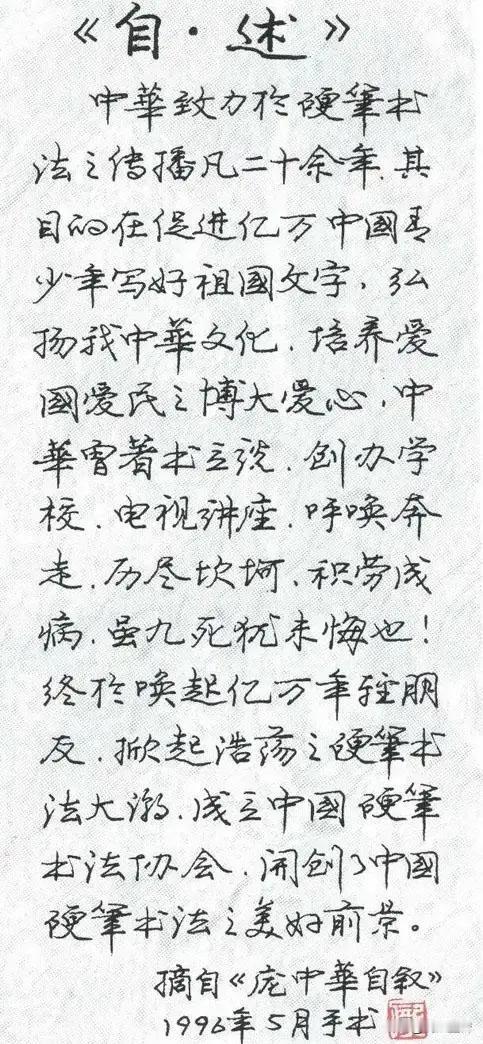 《自·述》
中華致力於硬筆书
法之传播凡二十余年.其
目的在促进亿万中國青
少年写好祖國文字，弘
扬我中華文化.培养爱
國爱民之博大爱心，中
華曾著书立说.创办学
校.电视讲座.呼唤奔
走.历尽坎坷.积劳成
病.虽九死犹未悔也！
终於唤起亿万年轻朋
友.掀起浩荡之硬筆书
法大潮.成立中國硬筆
书法协会.開创了中國
硬筆书法之美好前景。
摘自《庞中華自叙》
1996年5月手书